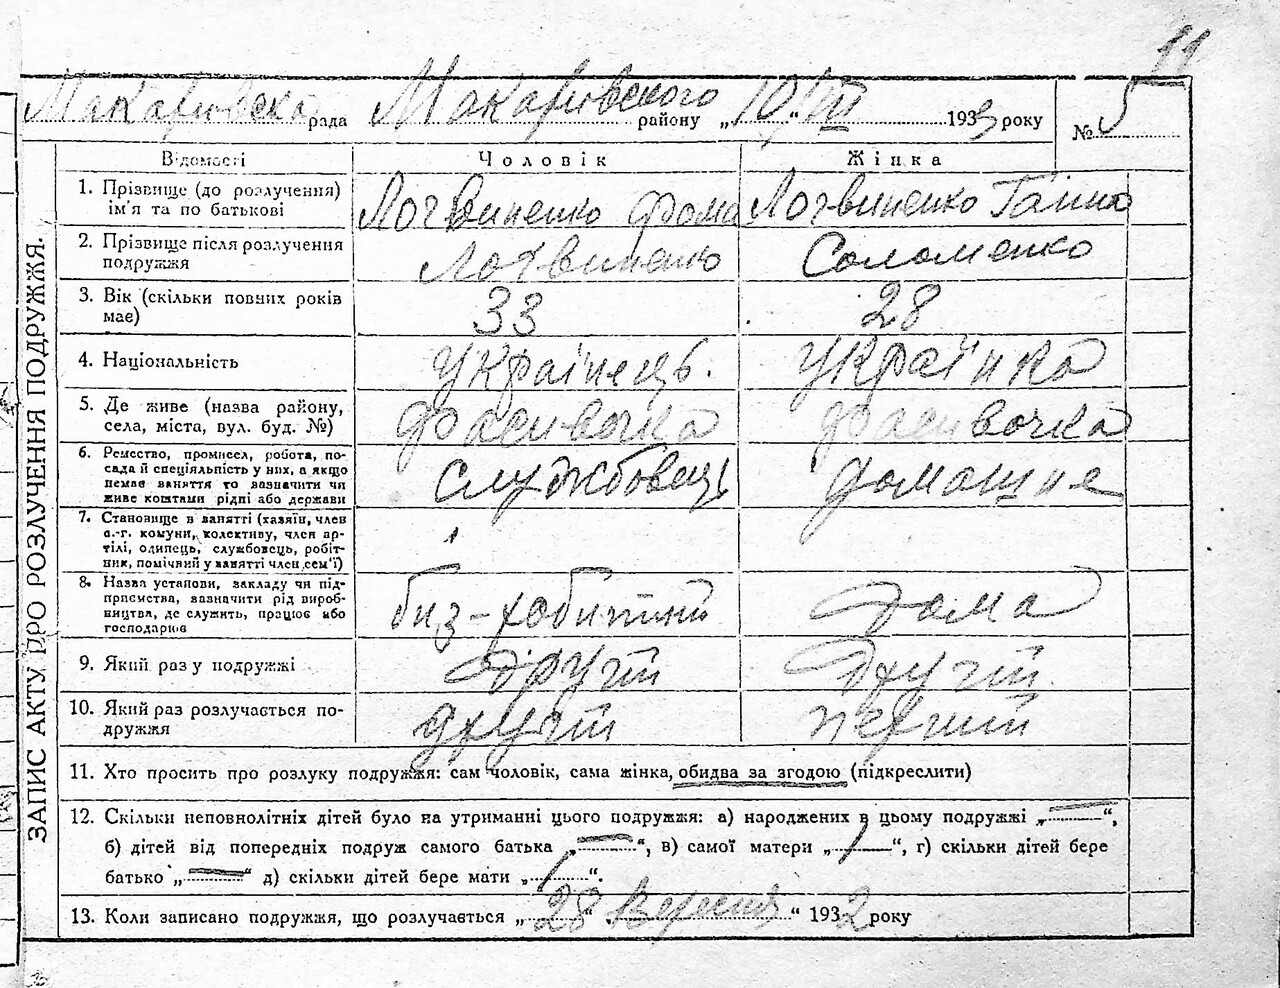 11
Макарівська рада Макарівского району „10/III“ 1933 року № 5
ЗАПИС АКТУ ПРО РОЗЛУЧЕННЯ ПОДРУЖЖЯ.
Відомості Чоловік Жінка
1. Прізвище (до розлучення) ім'я та по батькові Логвиненко Фома Логвиненко Ганна
2. Прізвище після розлучення подружжя Логвиненко Соломенко
3. Вік (скільки повних років має) 33 28
4. Національність Українець. Українка
5. Де живе (назва району, села, міста, вул. буд. №) Фасивочка Фасивочка
6. Ремество, промисел, робота, посада й спеціяльність у них, а якщо немає заняття то зазначити чи живе коштами рідні або держави службовець домашня
7. Становище в занятті (хазяїн, член с.-г. комуни, колективу, член артілі, одинець, службовець, робітник, помічний у занятті член сем'ї)
8. Назва установи, закладу чи підприємства, зазначити рід виробництва, де служить, працює або господарює биз-робитний дома
9. Який раз у подружжі другий другий
10. Який раз розлучається подружжя другий перший
11. Хто просить про розлуку подружжя: сам чоловік, сама жінка, обидва за згодою (підкреслити)
12. Скільки неповнолітніх дітей було на утриманні цього подружжя: а) народжених в цьому подружжі „—“,
б) дітей від попередніх подруж самого батька „—“, в) самої матери „/“, г) скільки дітей бере
батько „—“ д) скільки дітей бере мати „/“.
13. Коли записано подружжя, що розлучається „28“ Вересня “ 1932 року